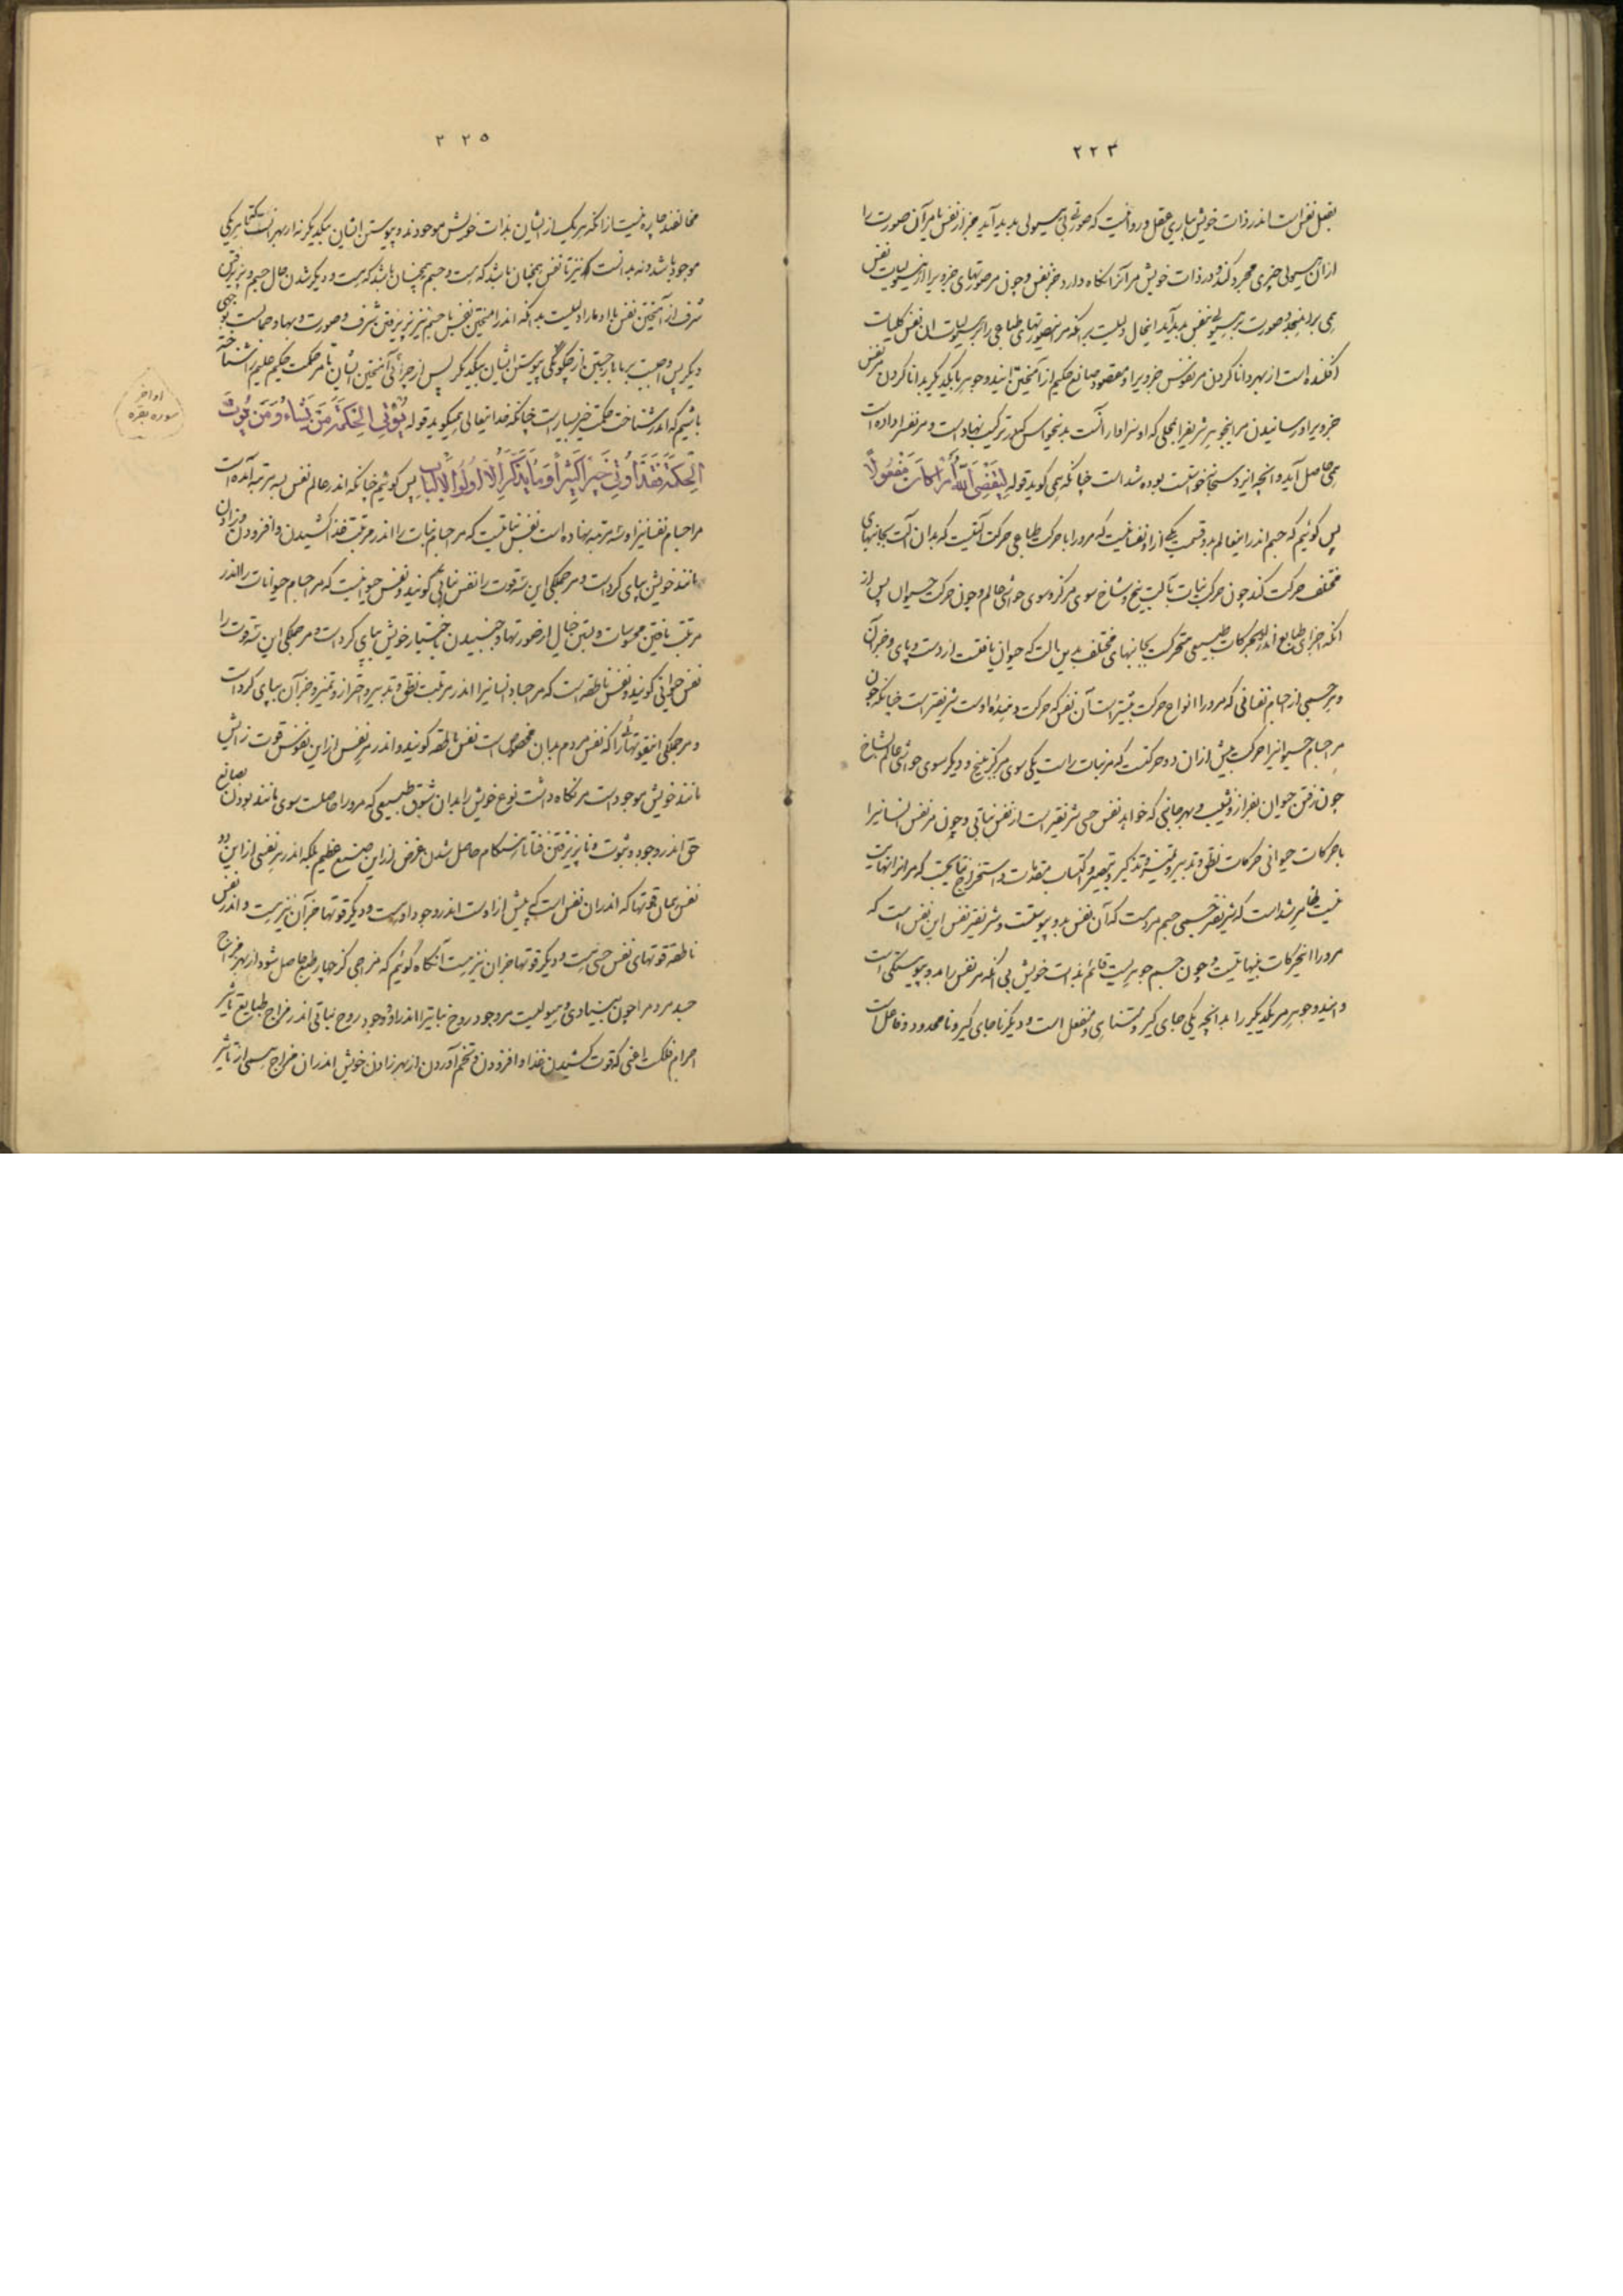 ۲۲۳
بفعل نفس است اندر ذات خویش بیاری عقل و روا نیست که صورتی بی هیولی پدید آید جز از نفس نامر آن صورت را
ازان هیولی چیزی مجرد کند و در ذات خویش مر آنرا نگاه دارد جز نفس و چون مر صورتهای جزویرا از هیولیات نفس
افکنده است از بهر دانا کردن مر نفوس جزویرا و مقصود صانع حکیم از آمیختن این دو جوهر با یکدیگر بدانا کردن مر نفس
جزویرا و رسانیدن مر این جوهر شریف را بمحلی که او سزاوار آنست بدین حواس
می حاصل آید و آنچه ایزد سبحانه خواست بوده شد است چنانکه می گوید قوله لِيَقْضِيَ اللَّهُ أَمْراً كَانَ مَفْعُولاً
پس گوئیم که جسم اندر اینعالم بدو قسمت یکی ازو نفسانیست که مرو را با حرکت طباعی حرکت آلتیست که بدان آلت بجانبهای
مختلف حرکت کند چون حرکت نبات بآلت بیخ و شاخ سوی مرکز و سوی حواشی عالم و چون حرکت حیوان پس از
آنکه اجزای طبایع اندرو بحرکات طبیعی متحرکست بجانبهای مختلف بدین آلت که حیوان یافتست از دست و پای و جز آن
و هر جسمی از اجسام نفسانی که مرو را انواع حرکت بیشتر است آن نفس که حرکت دهنده اوست شریفتر است چنانکه چون
مر اجسام حیوانیرا حرکت بیش ازان دو حرکتست که مر نبات راست یکی سوی مرکز ببیخ و دیگر سوی حواشی عالم بشاخ
چون رفتن حیوان بفراز و نشیب و بهر جانبی که خواهد نفس حسی شریفتر است از نفس نباتی و چون مر نفس انسانیرا
با حرکات حیوانی حرکات نطق و تدبیر و تمییز و تذکیر و تبصیر و اکتساب مقدمات و استخراج نتایجست که مر آنرا نهایت
نیست ظاهر شد است که شریفتر جسمی جسم مردمست که آن نفس بدو پیوستست و شریفتر نفس این نفس است که
مرو را این حرکات بینهایتست و چون جسم جوهریست قائم بذات خویش بی آنکه مر نفس را بدو پیوستگی است
و این دو جوهر مر یکدیگر را بدانچه یکی جای گیر و متناهی و منفعل است و دیگر نا جای گیر و نا محدود و فاعل است
۲۲۵
مخالفند چاره نیست ازانکه هر یک از ایشان بذات خویش موجودند و پیوستن ایشان بیکدیگر نه از بهر آنست تا هر یکی
موجود باشد و نه بدانست که نیز تا نفس همچنان باشد که هست و جسم همچنان باشد که هست و دیگر شدن حال جسم و پذیرفتن
شرف از آمیختن نفس با او ما را دلیلست بدانکه اندر آمیختن نفس با جسم نیز پذیرفتن شرف و صورت و بها و جمالست بوجهی
دیگر پس واجبست بر ما باز جستن از چگونگی پیوستن ایشان بیکدیگر پس از چرائی آمیختن ایشان تا مر حکمت حکیم علیم را شناخته
باشیم که اندر شناخت حکمت خیر بسیار است چنانکه خدایتعالی همیگوید قوله يُؤْتِي الْحِكْمَةَ مَنْ يَشَاءُ وَمَنْ يُؤْتَ
الْحِكْمَةَ فَقَدْ أُوتِيَ خَيْراً كَثِيراً وَمَا يَذَّكَّرُ إِلَّا أُولُوا الْأَلْبَابِ پس گوئیم چنانکه اندر عالم نفس بسه مرتبه آمده است
مر اجسام نفسانیرا و سه مرتبه نهاده است نفس نباتیست که مر اجسام نبات را اندر مرتبت غذا کشیدن و افزودن و زادن
مانند خویش بپای کردست و مر جملگی این سه قوت را نفس نباتی گویند و نفس حیوانیست که مر اجسام حیوانات را اندر
مرتبت یافتن محسوسات و بستن خیال از صورتها و جنبیدن باختیار خویش بپای کردست و مر جملگی این سه قوت را
نفس حیوانی گویند و نفس ناطقه است که مر اجساد انسانیرا اندر مرتبت نطق و تدبیر و احتراز و تمییز و جز آن بپای کردست
و مر جملگی اینقوتها را که نفس مردم بدان مخصوص است نفس ناطقه گویند و اندر هر نفس از این نفوس قوت زایش
مانند خویش موجود است مر نگاه داشت نوع خویش را بدان شوق طبیعی که مرو را حاصلست سوی مانند بودن بصانع
حق اندر وجود و ثبوت و نا پذیرفتن فنا تا هنگام حاصل شدن غرض از این صنع عظیم بلکه اندر هر نفسی از این دو
نفس همان قوتها که اندران نفس است که پیش از اوست اندر وجود اوست و دیگر قوتها جز آن نیز هست و اندر نفس
ناطقه قوتهای نفس حسی هست و دیگر قوتها جز آن نیز هست آنگاه گوئیم که مزاجی کز چهار طبع حاصل شود از بهر مزاج
جسد مردم را چون بنیادی و هیولیست مر وجود روح نباتیرا اندر او و وجود روح نباتی اندر مزاج طبایع بتأثیر
اجرام فلکست اعنی که قوت کشیدن غذا و افزودن و تخم آوردن از بهر زادن خویش اندران مزاج همی از تأثیر
اواخر
سوره بقره